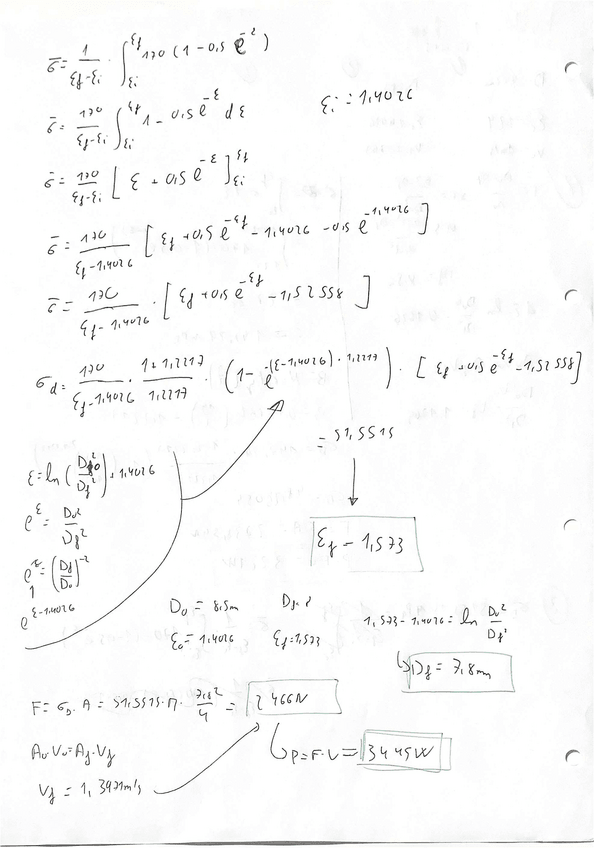 σ̄ = 1/(εf-εi) · ∫εi^εf 170 (1-0,5 e^-ε)
σ̄ = 170/(εf-εi) ∫εi^εf 1 - 0,5 e^-ε dε
εi = 1,4026
σ̄ = 170/(εf-εi) [ ε + 0,5 e^-ε ]εi^εf
σ̄ = 170/(εf-1,4026) [ εf + 0,5 e^-εf - 1,4026 - 0,5 e^-1,4026 ]
σ̄ = 170/(εf-1,4026) · [ εf + 0,5 e^-εf - 1,52558 ]
σd = 170/(εf-1,4026) · (1+1,2217)/1,2217 · (1 - e^(-(ε-1,4026)·1,2217)) · [ εf + 0,5 e^-εf - 1,52558 ]
= 51,5515
εf = 1,573
ε = ln (D0²/Df²) + 1,4026
e^ε = D0²/Df²
e^ε = (Df/D0)^-2
e^ε-1,4026
D0 = 8,5m Df = ?
ε0 = 1,4026 εf = 1,573
1,573 - 1,4026 = ln D0²/Df²
Df = 7,8mm
F = σD · A = 51,5515 · π · 7,8²/4 = 2466N
A0·V0 = Af·Vf
P = F·V = 3449W
Vf = 1,3971m/s